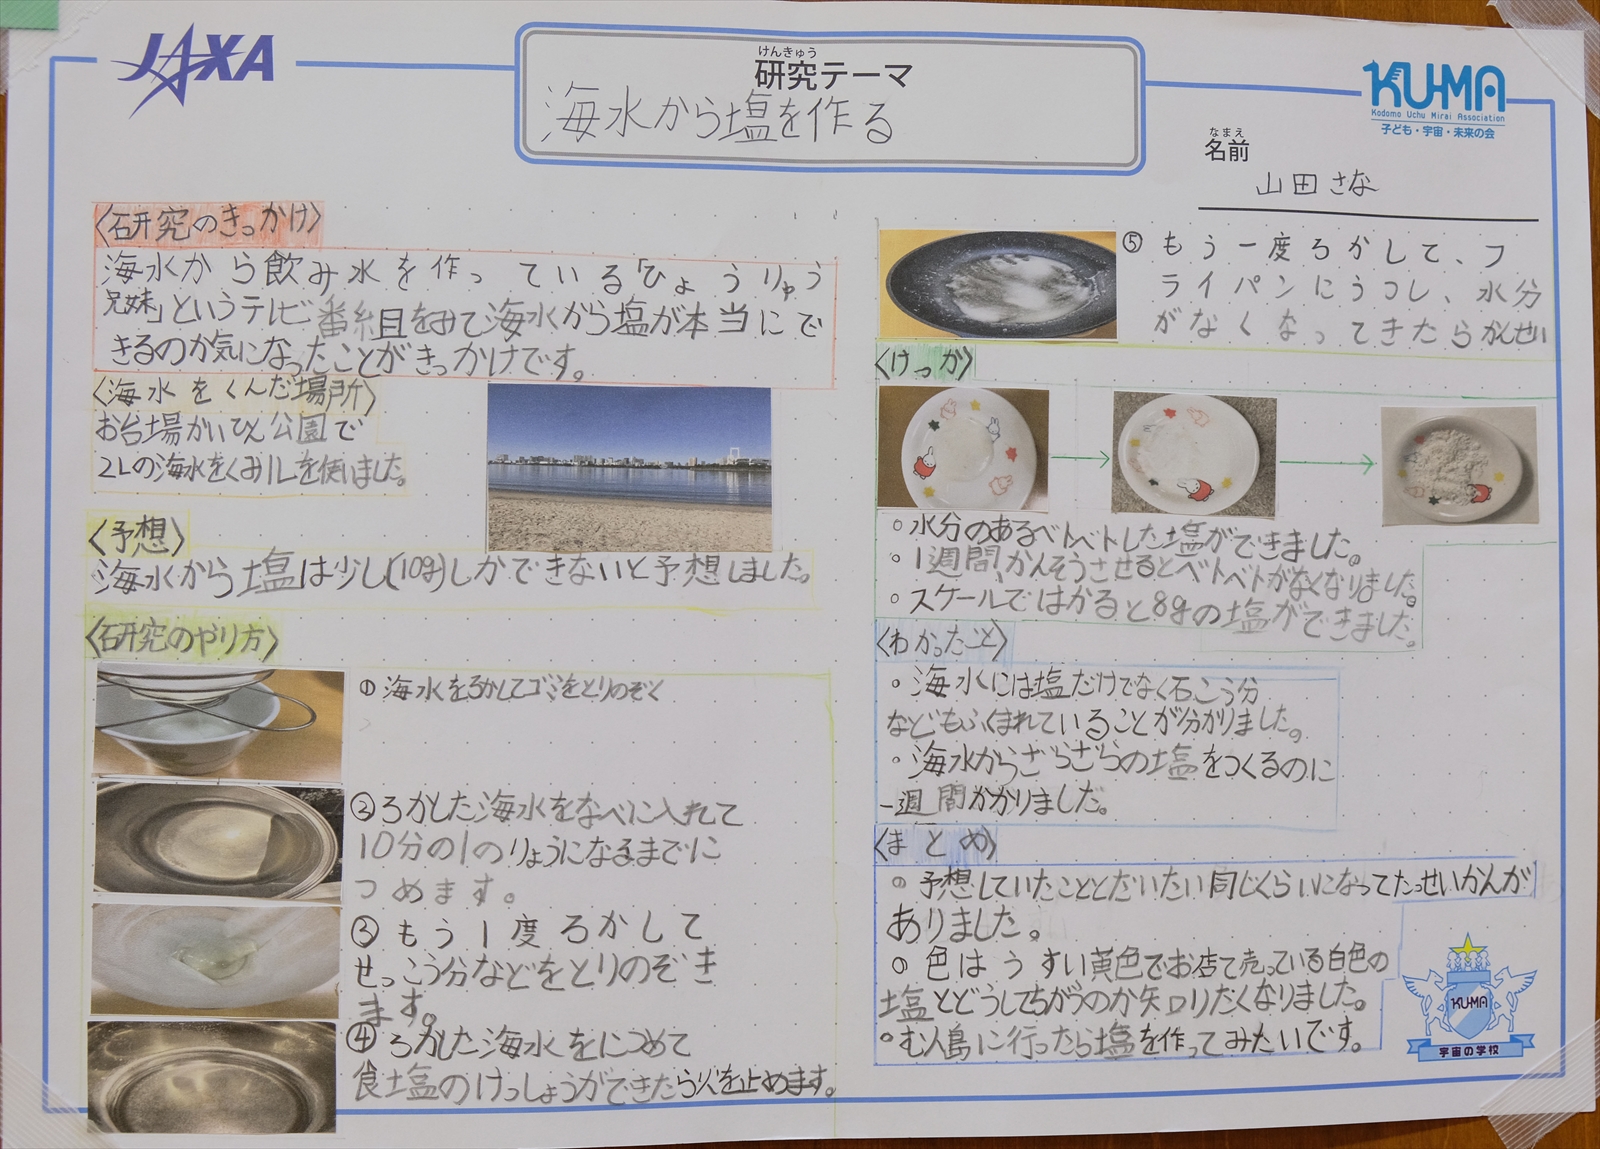 JAXA
けんきゅう
研究テーマ
海水から塩を作る
KU-MA
Kodomo Uchu Mirai Association
子ども・宇宙・未来の会
なまえ
名前
山田さな
〈研究のきっかけ〉
海水から飲み水を作っている「ひょうりゅう
兄妹」というテレビ番組をみて海水から塩が本当にで
きるのか気になったことがきっかけです。
〈海水をくんだ場所〉
お台場かいひん公園で
2Lの海水をくみ1Lを使いました。
〈予想〉
海水から塩は少し(10g)しかできないと予想しました。
〈研究のやり方〉
①海水をろかしてゴミをとりのぞく
②ろかした海水をなべに入れて
10分の1のりょうになるまでに
つめます。
③もう1度ろかして
せっこう分などをとりのぞき
ます。
④ろかした海水をにつめて
食塩のけっしょうができたら火を止めます。
⑤もう一度ろかして、フ
ライパンにうつし、水分
がなくなってきたらかんせい
〈けっか〉
○水分のあるベトベトした塩ができました。
○1週間、かんそうさせるとベトベトがなくなりました。
○スケールではかると8gの塩ができました。
〈わかったこと〉
○海水には塩だけでなく石こう分
などもふくまれていることが分かりました。
○海水からざらざらの塩をつくるのに
一週間かかりました。
〈まとめ〉
○予想していたこととだいたい同じくらいになってたっせいかんが
ありました。
○色はうすい黄色でお店で売っている白色の
塩とどうしてちがうのか知りたくなりました。
○む人島に行ったら塩を作ってみたいです。
KU-MA
宇宙の学校